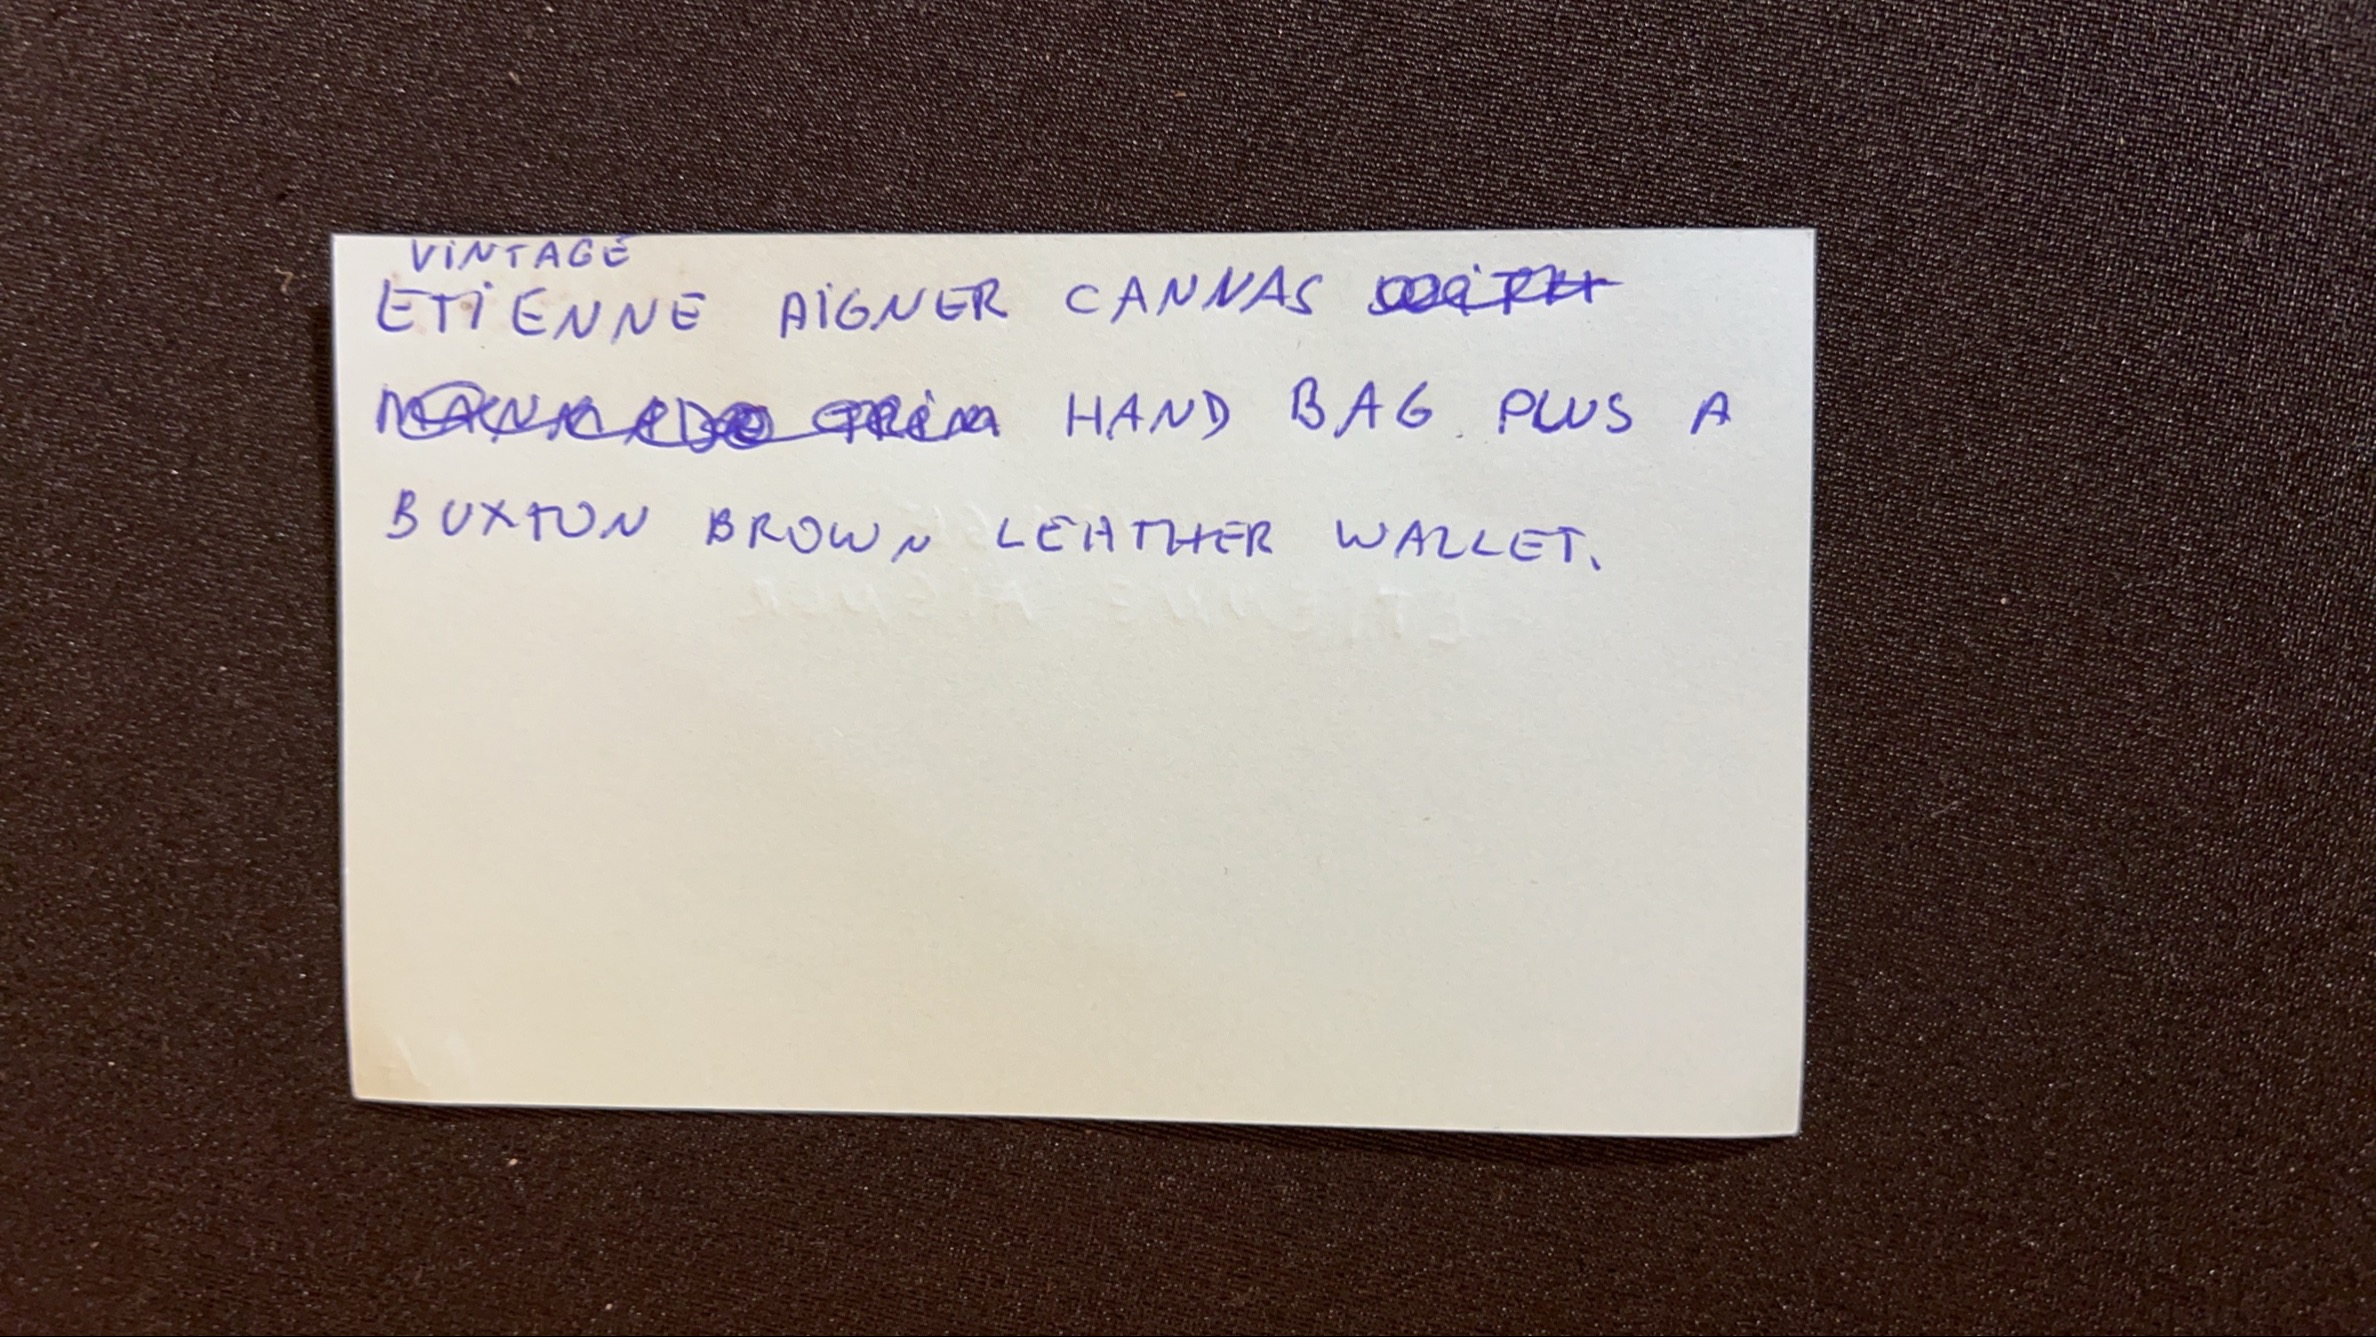 VINTAGE
ETIENNE AIGNER CANNAS
HAND BAG PLUS A
BUXTON BROWN LEATHER WALLET.